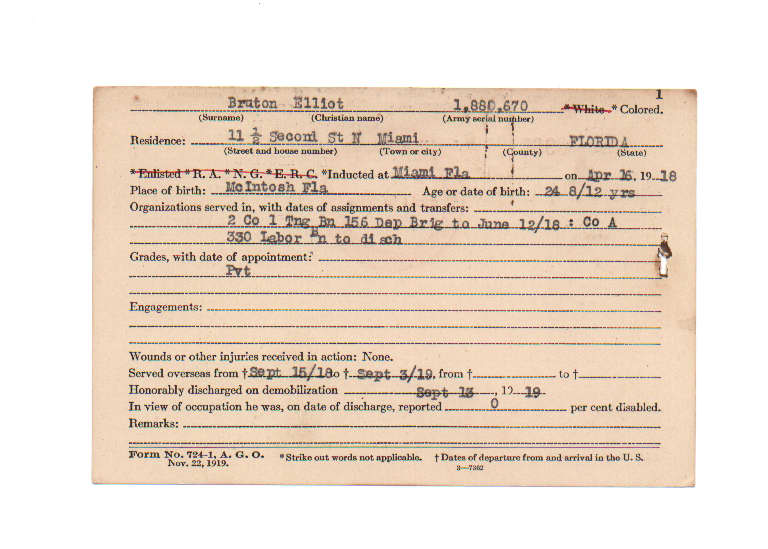 1
Bruton Elliot 1,880,670 *White *Colored.
(Surname) (Christian name) (Army serial number)
Residence: 11 ½ Second St N Miami FLORIDA
(Street and house number) (Town or city) (County) (State)
*Enlisted *R. A. *N. G. *E. R. C. *Inducted at Miami Fla on Apr 16, 19 18
Place of birth: McIntosh Fla Age or date of birth: 24 8/12 yrs
Organizations served in, with dates of assignments and transfers:
2 Co 1 Tng Bn 156 Dep Brig to June 12/18 : Co A
330 Labor Bn to disch
Grades, with date of appointment:
Pvt
Engagements:
Wounds or other injuries received in action: None.
Served overseas from † Sept 15/18 to † Sept 3/19, from † to †
Honorably discharged on demobilization Sept 13, 19 19
In view of occupation he was, on date of discharge, reported 0 per cent disabled.
Remarks:
Form No. 724-1, A. G. O. *Strike out words not applicable. † Dates of departure from and arrival in the U. S.
Nov. 22, 1919. 3—7302